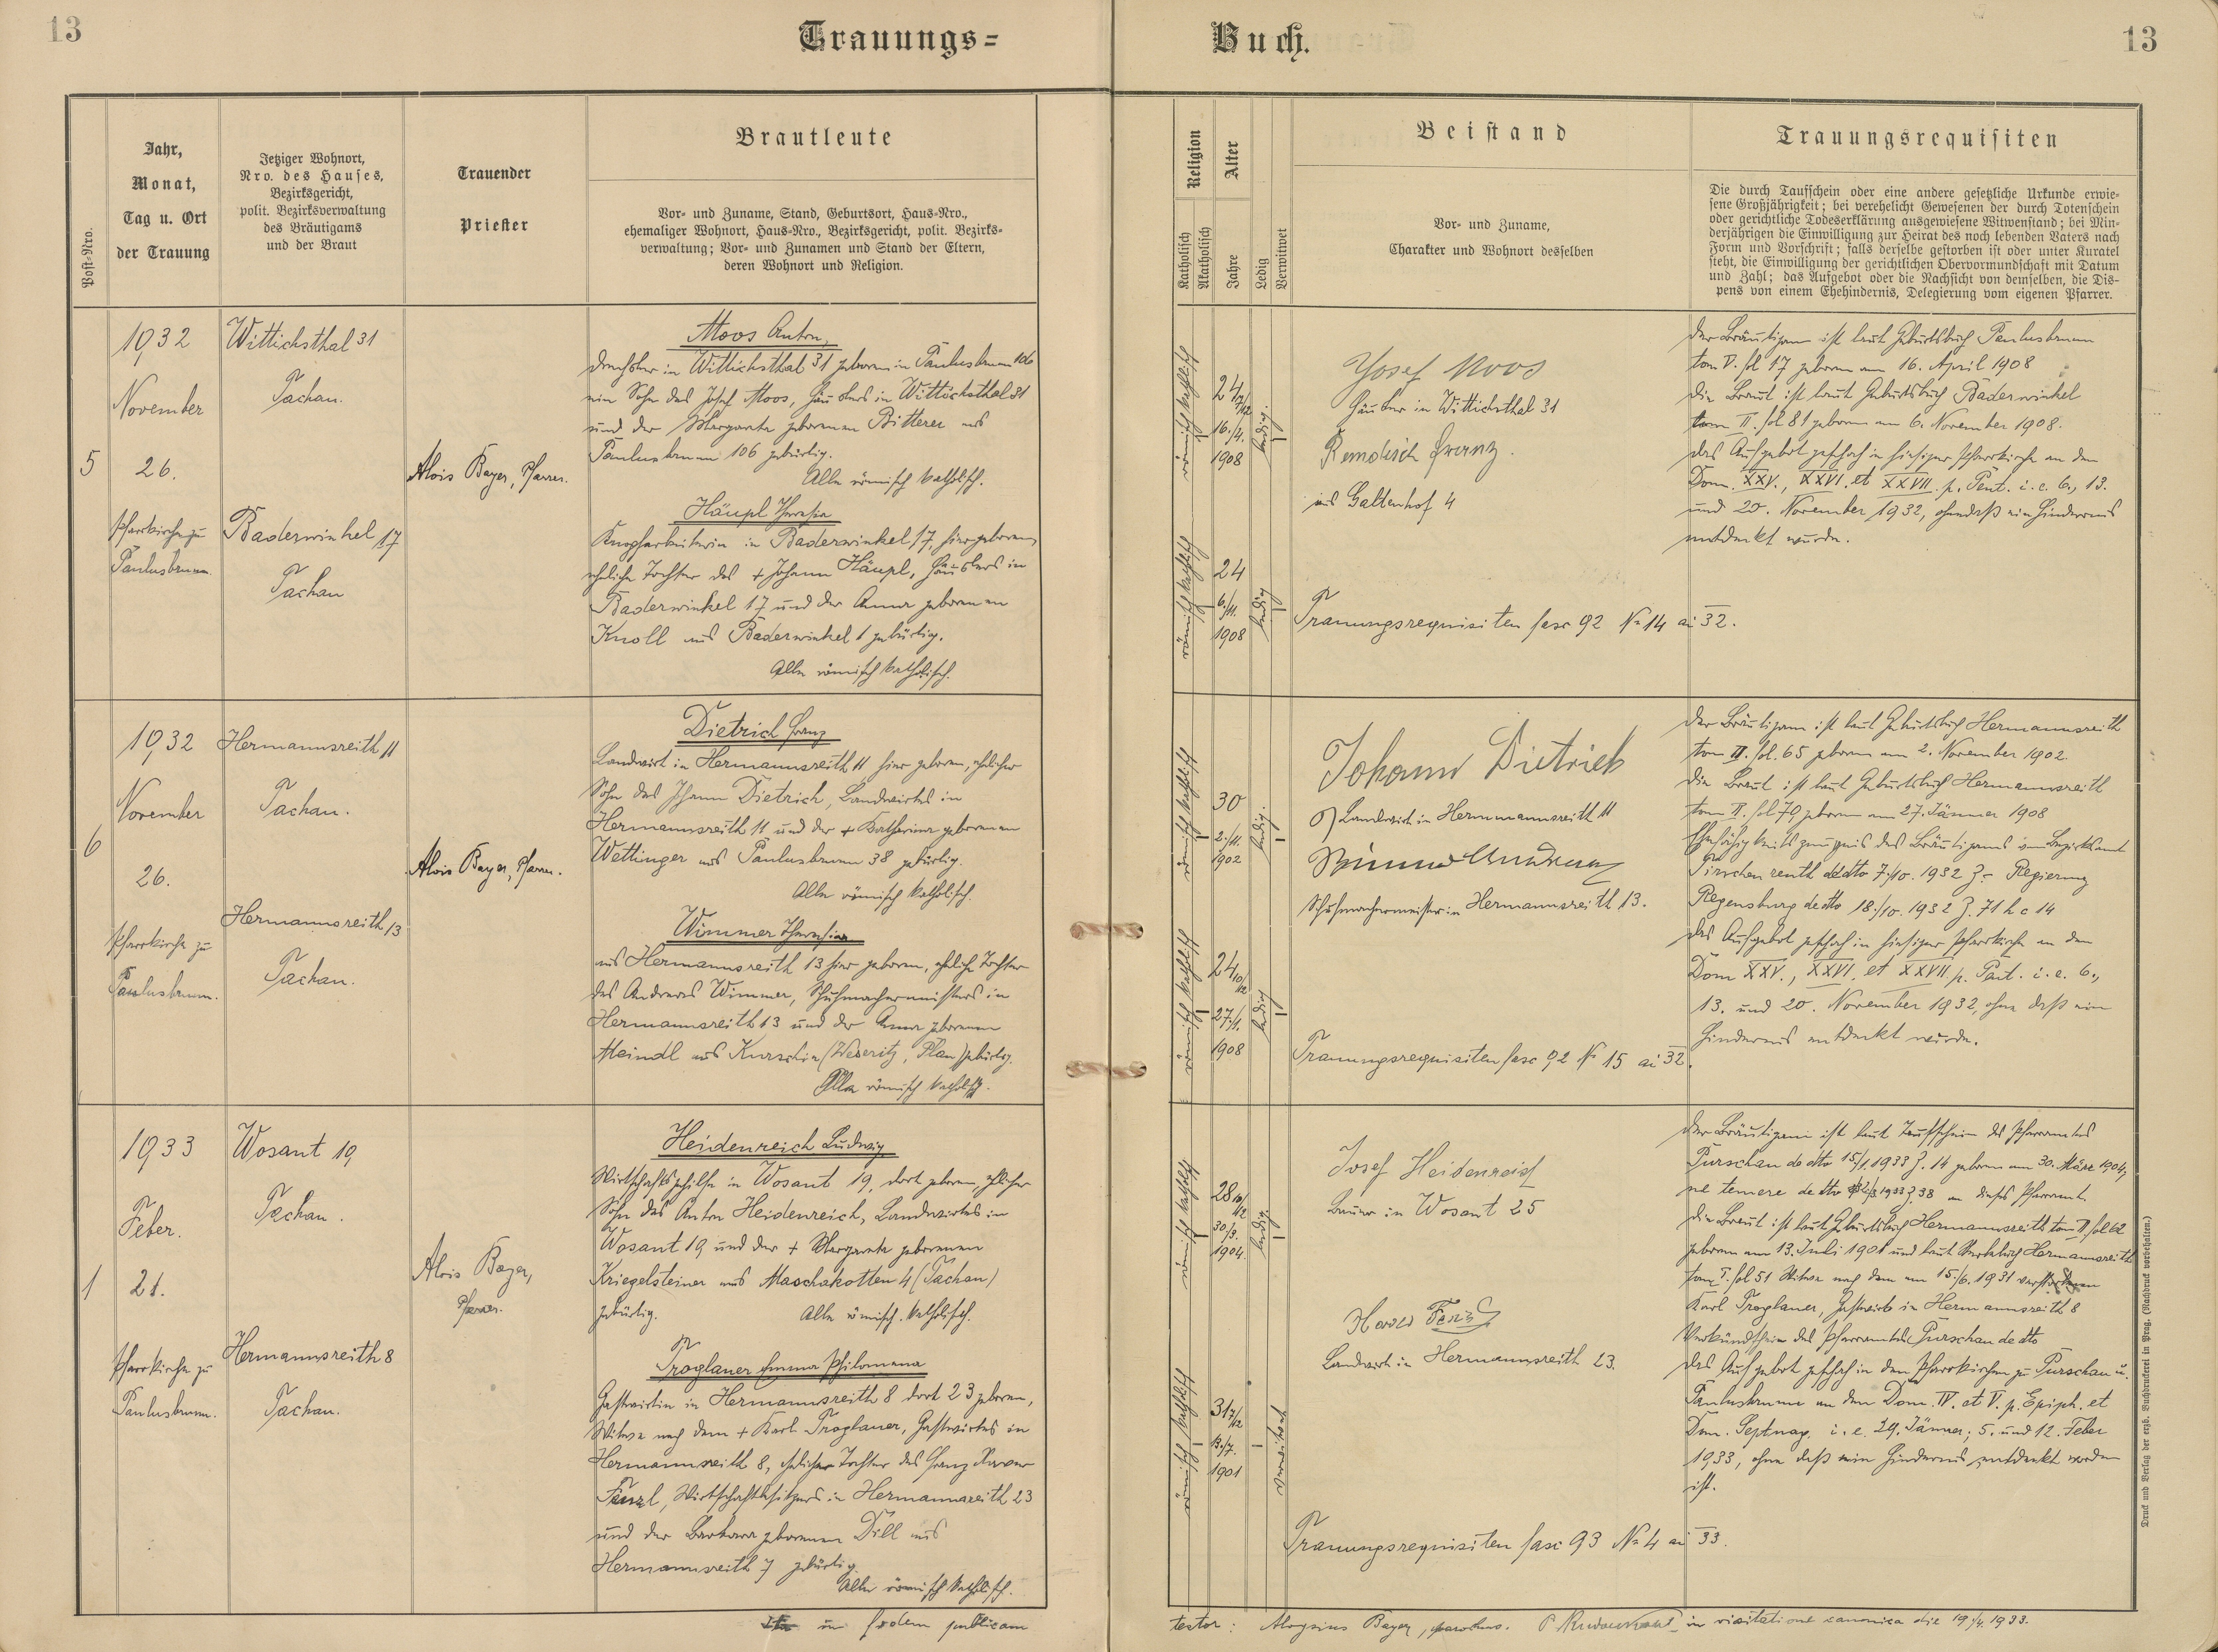 13
Trauungs=
Buch.
13
Post=Nro.
Jahr,
Monat,
Tag u. Ort
der Trauung
Jetziger Wohnort,
Nro. des Hauses,
Bezirksgericht,
polit. Bezirksverwaltung
des Bräutigams
und der Braut
Trauender
Priester
Brautleute
Vor= und Zuname, Stand, Geburtsort, Haus=Nro.,
ehemaliger Wohnort, Haus=Nro., Bezirksgericht, polit. Bezirks=
verwaltung; Vor= und Zunamen und Stand der Eltern,
deren Wohnort und Religion.
Religion
Katholisch
Akatholisch
Alter
Jahre
Ledig
Verwitwet
Beistand
Vor= und Zuname,
Charakter und Wohnort desselben
Trauungsrequisiten
Die durch Taufschein oder eine andere gesetzliche Urkunde erwie=
sene Großjährigkeit; bei verehelicht Gewesenen der durch Totenschein
oder gerichtliche Todeserklärung ausgewiesene Witwenstand; bei Min=
derjährigen die Einwilligung zur Heirat des noch lebenden Vaters nach
Form und Vorschrift; falls derselbe gestorben ist oder unter Kuratel
steht, die Einwilligung der gerichtlichen Obervormundschaft mit Datum
und Zahl; das Aufgebot oder die Nachsicht von demselben, die Dis=
pens von einem Ehehindernis, Delegierung vom eigenen Pfarrer.
5
1932
November
26.
Pfarrkirche zu
Paulusbrunn.
Wittichsthal 31
Tachau.
Baderwinkel 17
Tachau
Alois Bayer, Pfarrer.
Moos Anton,
Drechsler in Wittichsthal 31 geboren in Paulusbrunn 106
ein Sohn des Josef Moos, Häuslers in Wittichsthal 31
und der Margareta geborenen Bitterer aus
Paulusbrunn 106 gebürtig.
Alle römisch katholisch.
Häupl Theresia
Knopfarbeiterin in Baderwinkel 17 hier geboren,
eheliche Tochter des + Johann Häupl, Häuslers in
Baderwinkel 17 und der Anna geborenen
Knoll aus Baderwinkel 1 gebürtig.
Alle römisch katholisch.
römisch katholisch
24 7/12
16./4.
1908
ledig
römisch katholisch
24
6./11.
1908
ledig
Josef Moos
Häusler in Wittichsthal 31
Franz.
aus Galtenhof 4
Trauungsrequisiten fasc 92 No 14 ai 32.
Der Bräutigam ist laut Geburtsbuch Paulusbrunn
tom V. fol 17 geboren am 16. April 1908
Die Braut ist laut Geburtsbuch Baderwinkel
tom II. fol 81 geboren am 6. November 1908.
Das Aufgebot geschah in hiesiger Pfarrkirche an den
Dom. XXV., XXVI. et XXVII. p. Pent. i. e. 6., 13.
und 20. November 1932, ohne daß ein Hindernis
entdeckt wurde.
6
1932
November
26.
Pfarrkirche zu
Paulusbrunn.
Hermannsreith 11
Tachau.
Hermannsreith 13
Tachau.
Alois Bayer, Pfarrer.
Dietrich Franz
Landwirt in Hermannsreith 11 hier geboren, ehelicher
Sohn des Johann Dietrich, Landwirtes in
Hermannsreith 11 und der + Katharina geborenen
Wettinger aus Paulusbrunn 38 gebürtig.
Alle römisch katholisch.
Wimmer Theresia
aus Hermannsreith 13 hier geboren, eheliche Tochter
des Andreas Wimmer, Schuhmachermeisters in
Hermannsreith 13 und der Anna geborenen
Meindl aus Kurschin (Weseritz, Plan) gebürtig.
Alle römisch katholisch.
römisch katholisch
30
2./11.
1902
ledig
römisch katholisch
24 10/12
27./1.
1908
ledig
Johann Dietrich
Landwirt in Hermannsreith 11
Wimmer Andreas
Schuhmachermeister in Hermannsreith 13.
Trauungsrequisiten fasc 92 No 15 ai 32.
Der Bräutigam ist laut Geburtsbuch Hermannsreith
tom II. fol. 65 geboren am 2. November 1902.
Die Braut ist laut Geburtsbuch Hermannsreith
tom II. fol 70 geboren am 27. Jänner 1908
Ehefähigkeitszeugnis des Bräutigams vom Bezirksamt
Tirschenreuth de dto 7./10. 1932 Z. - Regierung
Regensburg de dto 18./10. 1932 Z. 71 h c 14
Das Aufgebot geschah in hiesiger Pfarrkirche an den
Dom XXV., XXVI. et XXVII. p. Pent. i. e. 6.,
13. und 20. November 1932, ohne daß ein
Hindernis entdeckt wurde.
1
1933
Feber.
21.
Pfarrkirche zu
Paulusbrunn.
Wosant 19
Tachau.
Hermannsreith 8
Tachau.
Alois Bayer,
Pfarrer.
Heidenreich Ludwig
Wirtschaftsgehilfe in Wosant 19, dort geboren, ehelicher
Sohn des Anton Heidenreich, Landwirtes in
Wosant 19 und der + Margareta geborenen
Kriegelsteiner aus Maschakotten 4 (Tachau)
gebürtig. Alle römisch. katholisch.
Troglauer Emma Philomena
Gastwirtin in Hermannsreith 8 dort 23 geboren,
Witwe nach dem + Karl Troglauer, Gastwirtes in
Hermannsreith 8, eheliche Tochter des Franz Xaver
Fenzl, Wirtschaftsbesitzers in Hermannsreith 23
und der Barbara geborenen Dill aus
Hermannsreith 7 gebürtig.
Alle römisch katholisch.
römisch katholisch
28 10/12
30./3.
1904.
ledig
römisch katholisch
31 7/12
13./7.
1901
verwitwet
Josef Heidenreich
Bauer in Wosant 25
Fenzl
Landwirt in Hermannsreith 23.
Trauungsrequisiten fasc 93 No 4 ai 33.
Der Bräutigam ist laut Taufschein des Pfarramtes
Purschau de dto 15/1. 1933 Z. 14 geboren am 30. März 1904,
ne temere de dto 1933 Z. 38 an dieses Pfarramt.
Die Braut ist laut Geburtsbuch Hermannsreith tom II fol 62
geboren am 13. Juli 1901 und laut Sterbebuch Hermannsreith
tom I. fol 51 Witwe nach dem am 15./6. 1931 verstorbenen
Karl Troglauer, Gastwirt in Hermannsreith 8
Verkündschein des Pfarramtes Purschau de dto
Das Aufgebot geschah in den Pfarrkirchen zu Purschau u.
Paulusbrunn an den Dom. IV. et V. p. Epiph. et
Dom. Septuag. i. e. 29. Jänner; 5. und 12. Feber
1933, ohne daß ein Hindernis entdeckt worden
ist.
in fidem publicam
testor: Aloysius Bayer, parochus.
in visitatione canonica die 19./4. 1933.
Druck und Verlag der erzb. Buchdruckerei in Prag. (Nachdruck vorbehalten.)